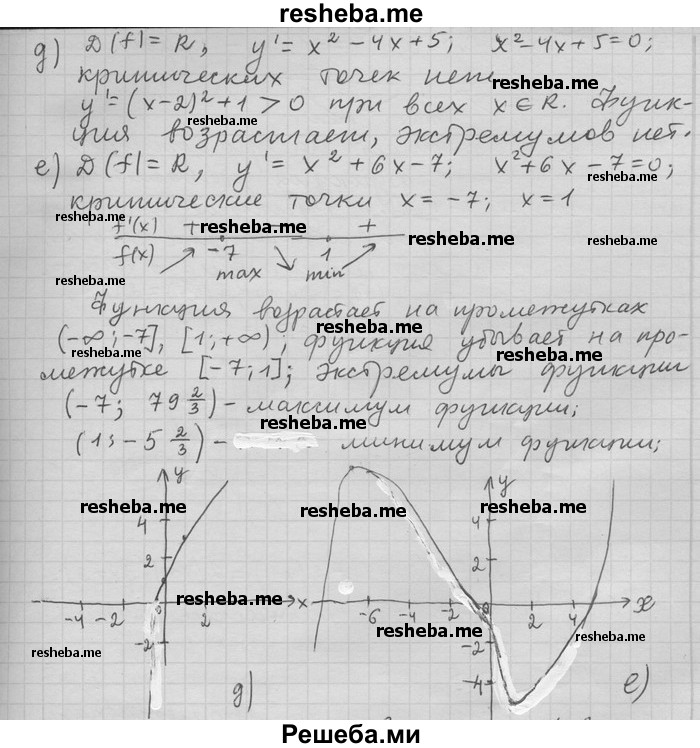 resheba.me
д) D(f)=R, y'=x²-4x+5; x²-4x+5=0;
критических точек нет.
resheba.me
y'=(x-2)²+1>0 при всех x∈R. Функ-
resheba.me
ция возрастает, экстремумов нет.
е) D(f)=R, y'=x²+6x-7; x²+6x-7=0;
resheba.me
критические точки x=-7; x=1
resheba.me
f'(x) + resheba.me +
resheba.me resheba.me
f(x) -7 1
max min
resheba.me
Функция возрастает на промежутках
resheba.me
(-∞;-7], [1;+∞); функция убывает на про-
resheba.me resheba.me
межутке [-7;1]; экстремумы функции
(-7; 79 2/3) - максимум функции;
(1; -5 2/3) - минимум функции;
y y
resheba.me resheba.me resheba.me
4 4
2 2
resheba.me
-4 -2 0 2 x -6 0 2 4 x
resheba.me resheba.me
-2 -2
resheba.me
-4
д) е)
Решеба.ми